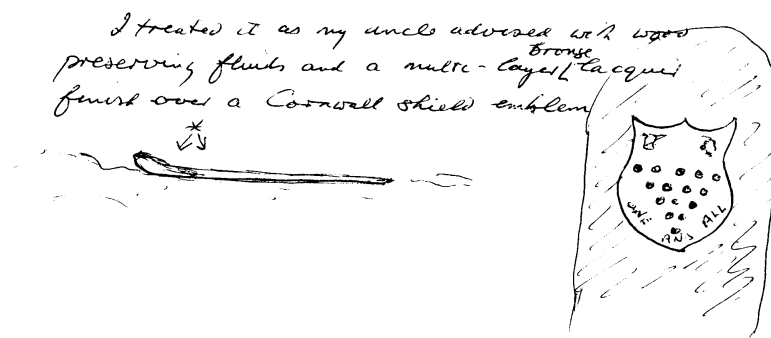 I treated it as my uncle advised with wood
bronse
preserving fluids and a multi-layer lacquer
finish over a Cornwall shield emblem
ONE AND ALL